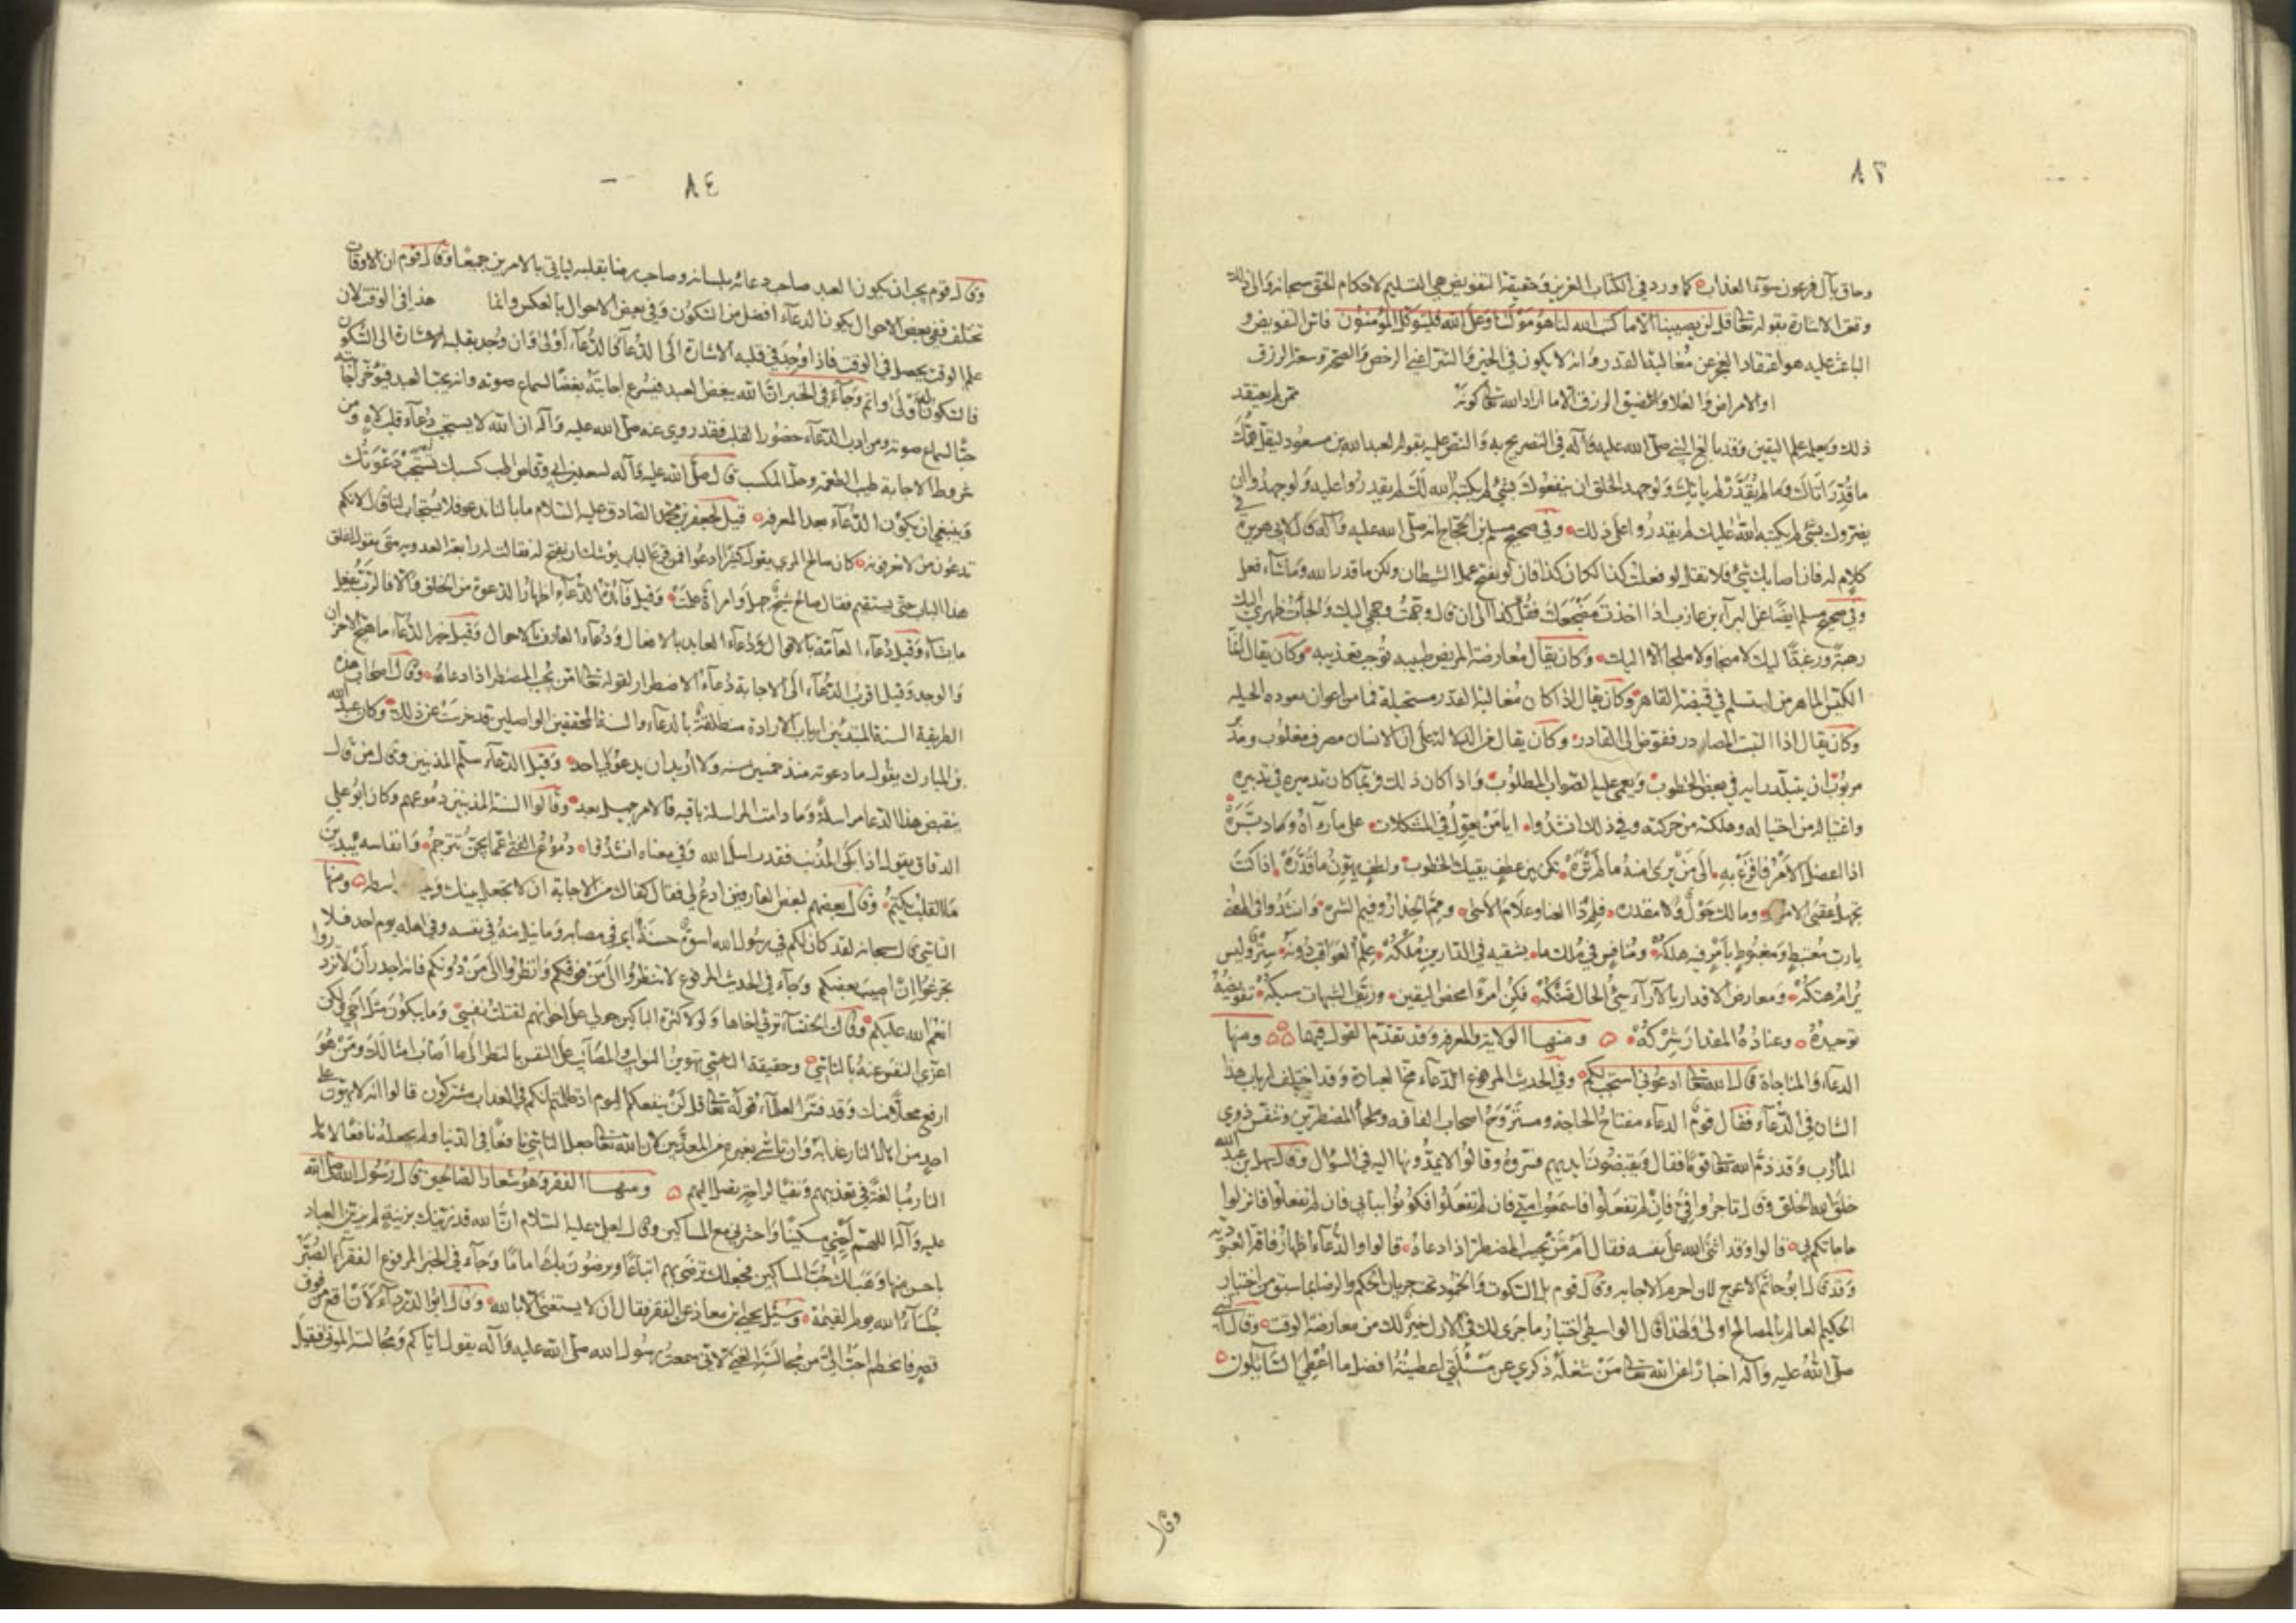 ٨٣
وحاق بآل فرعون سوء العذاب كما ورد في الكتاب العزيز وحقيقة التفويض هي التسليم لاحكام الحق سبحانه والى ذلك
وقعت الاشارة بقوله تعالى قل لن يصيبنا الا ما كتب الله لنا هو مولٰنا وعلى الله فليتوكل المؤمنون فاس التفويض و
الباعث عليه هو اعتقاد العجز عن مغالبة القدر وانه لا يكون في الخير والشر اعني الرخص والصحة وسعة الرزق
او الامراض والغلا وضيق الرزق الا ما اراد الله تعالى كونه ممن لم يعتقد
ذلك ويعلم علم اليقين وقد بالغ النبي صلى الله عليه وآله في التصريح به والنص عليه بقوله لعبد الله بن مسعود ليقل همك
ما قدر اتاك وما لم يقدر لم ياتك ولو جهد الخلق ان ينفعوك بشئ لم يكتبه الله لك لم يقدروا عليه ولو جهدوا ان
يضروك بشئ لم يكتبه الله عليك لم يقدروا على ذلك وفي صحيح مسلم بن الحجاج انه صلى الله عليه وآله قال لابي هريرة في
كلام له فان اصابك شئ فلا تقل لو فعلت كذا لكان كذا فان لو يفتح عمل الشيطان ولكن ما قدر الله وما شاء فعل
وفي صحيح مسلم ايضا عن البراء بن عازب اذا اخذت مضجعك فقل كذا الى ان قال وجهت وجهي اليك والجأت ظهري اليك
رهبة ورغبة اليك لا منجا ولا ملجا الا اليك وكان يقال معارضة المريض طبيبه توجب تعذيبه وكان يقال انما
الكيس الماهر من استسلم في قبضة القاهر وكان يقال اذا كان مغالبة القدر مستحيلة فما من اعوان نعوده الحيله
وكان يقال اذا التبت المصادر ففوض الى القادر وكان يقال من الدلالة على ان الانسان مصرف مغلوب ومدبر
مربوب ان يتبلد رايه في بعض الخطوب ويعمى عليه الصواب المطلوب واذا كان ذلك فربما كان تدميره في تدبيره
واغتياله من احتياله وهلكته من حركته وفي ذلك انشدوا ايا من يعول في المشكلات على ما رآه وما دبره
اذا اعضل الامر فافزع به الى من يرى منه ما لم تره تكن بين عطف يقيك الخطوب ولطف يهون ما قدره اذا كنت
تجهل عقبى الامور وما لك حول ولا مقدره فلم ذا العنا وعلام الاسى ومم الحذار وفيم الشره وانشدوا في المعنى
يا رب مغتبط ومغبوط بامر فيه هلكه ومنافس في ملك ما يشقيه في الدارين ملكه علم العواقب دونه ستر وليس
يرام هتكه ومعارض الاقدار بالآراء سيئ الحال ضنكه فكن امرءا محض اليقين وزيف الشبهات سبكه تفويضه
توحيده وعناده المقدار شركه ومنها الولاية والمعرفة وقد تقدم القول فيهما ومنها
الدعاء والمناجاة قال الله تعالى ادعوني استجب لكم وفي الحديث المرفوع الدعاء مخ العبادة وقد اختلف ارباب هذا
الشان في الدعاء فقال قوم الدعاء مفتاح الحاجة ومستروح اصحاب الفاقه وملجأ المضطرين ومتنفس ذوي
المآرب وقد ذم الله تعالى قوما فقال ويقبضون ايديهم فسروه وقالوا لا يمدونها اليه في السؤال وقال سهل بن عبد الله
خلق الله الخلق وقال تاجروا في فان لم تفعلوا فاسمعوا مني فان لم تفعلوا فكونوا ببابي فان لم تفعلوا فانزلوا
حاجاتكم بي قالوا وقد اثنى الله على نفسه فقال امن يجيب المضطر اذا دعاه قالوا والدعاء اظهار فاقة العبودية
وقد قال ابو حاتم الاعرج لان احرم الاجابه وقال قوم بل السكوت والخمود تحت جريان الحكم والرضا بما سبق من اختيار
الحكيم العالم بالمصالح اولى ولهذا قال الواسطي اختيار ما جرى لك في الازل خير لك من معارضة الوقت وقال النبي
صلى الله عليه وآله اخبارا عن الله تعالى من شغله ذكري عن مسئلتي اعطيته افضل ما اعطي السائلون
وقال
٨٤
وقال قوم يجب ان يكون العبد صاحب دعائه بلسانه وصاحب رضا بقلبه لياتي بالامرين جميعا وقال قوم ان الاوقات
تختلف ففي بعض الاحوال يكون الدعاء افضل من السكوت وفي بعض الاحوال بالعكس وانما هذا في الوقت لان
علم الوقت يحصل في الوقت فاذا وجد في قلبه الاشارة الى الدعاء فالدعاء اولى وان وجد بقلبه الاشارة الى السكوت
فالسكوت له اولى واتم وجاء في الخبر ان الله يبغض العبد فيسرع اجابته بغضا لسماع صوته وانه يحب العبد فيؤخر اجابته
حبا لسماع صوته ومن ادب الدعاء حضور القلب فقد روى عنه صلى الله عليه وآله ان الله لا يستجيب دعاء قلب لاه ومن
شروط الاجابة طيب الطعمة وحل المكسب قال صلى الله عليه وآله لسعد بن ابي وقاص اطب كسبك تستجب دعوتك
وينبغي ان يكون الدعاء بعد المعرفه قيل لجعفر بن محمد الصادق عليه السلام ما بالنا ندعو فلا يستجاب لنا قال لانكم
تدعون من لا تعرفونه كان صالح المري يقول كثيرا ادعوا فمن قرع الباب يوشك ان يفتح له فقالت له رابعة العدويه متى يقول اغلق
هذا الباب حتى يستقيم فقال صالح شيخ جهل وامراة علمت وقيل فائدة الدعاء اظهار الدعوة من الخلق والا فالرب يفعل
ما يشاء وقيل دعاء العامة بالاقوال ودعاء العابد بالافعال ودعاء العارف بالاحوال وقيل خير الدعاء ما هيج الاحزان
والوجد وقيل اقرب الدعاء الى الاجابة دعاء الاضطرار لقوله تعالى امن يجيب المضطر اذا دعاه وقال اصحاب هذه
الطريقة السنة المبتدئين ارباب الارادة منطلقة بالدعاء والسنة المحققين الواصلين قد خرست عن ذلك وكان عبد الله
بن المبارك يقول ما دعوته منذ خمسين سنه ولا اريد ان يدعو لي احد وقيل الدعاء سلم المذنبين وقال من قال
بنقيض هذا الدعا مراسلة وما دامت المراسلة باقيه فالامر جميل بعد وقالوا السنة المذنبين دموعهم وكان ابو علي
الدقاق يقول اذا بكى المذنب فقد راسل الله وفي معناه انشدوا دموع الفتى عما يجن تترجم وانفاسه يبدين
ما القلب يكتم وقال بعضهم لبعض العارفين ادع لي فقال كفاك من الاجابة ان لا تجعل بينك وبينه واسطه ومنها
التاسي قال سبحانه لقد كان لكم في رسول الله اسوة حسنة اي في مصابه وما نيل منه في نفسه وفي اهله يوم احد فلا
تجزعوا ان اصيب بعضكم وجاء في الحديث المرفوع لا تنظروا الى من فوقكم وانظروا الى من دونكم فانه اجدر أن لا تزدروا
انعم الله عليكم وقالت الخنساء ترثي اخاها ولولا كثرة الباكين حولي على اخوانهم لقتلت نفسي وما يبكون مثل اخي ولكن
اعزي النفس عنه بالتاسي وحقيقة التاسي تهوين النوايب والمصائب على النفس بالنظر الى ما اصاب امثالك ومن هو
ارفع محلا منك وقد فسر العلماء قوله تعالى قل لن ينفعكم اليوم اذ ظلمتم انكم في العذاب مشتركون قالوا انه لا يهون على
احد من اهل النار عذابه وان تاسى بغيره من المعذبين لان الله تعالى جعل التاسي نافعا في الدنيا ولم يجعله نافعا لاهل
النار مبالغة في تعذيبهم ونفيا لراحة تصل اليهم ومنها الفقر وهو شعار الصالحين قال رسول الله صلى الله
عليه وآله اللهم احيني مسكينا واحشرني مع المساكين وقال لعلي عليه السلام ان الله قد زينك بزينة لم يزين العباد
باحسن منها وهب لك حب المساكين فجعلك ترضى بهم اتباعا ويرضون بك اماما وجاء في الخبر المرفوع الفقراء الصبر
جلساء الله يوم القيمة وسئل يحيى بن معاذ عن الفقر فقال ان لا يستغنى الا بالله وقال ابو الدرداء لان اقع من فوق
قصر فانحطم احب الي من مجالسة الغني لاني سمعت رسول الله صلى الله عليه وآله يقول اياكم ومجالسة الموتى فقيل